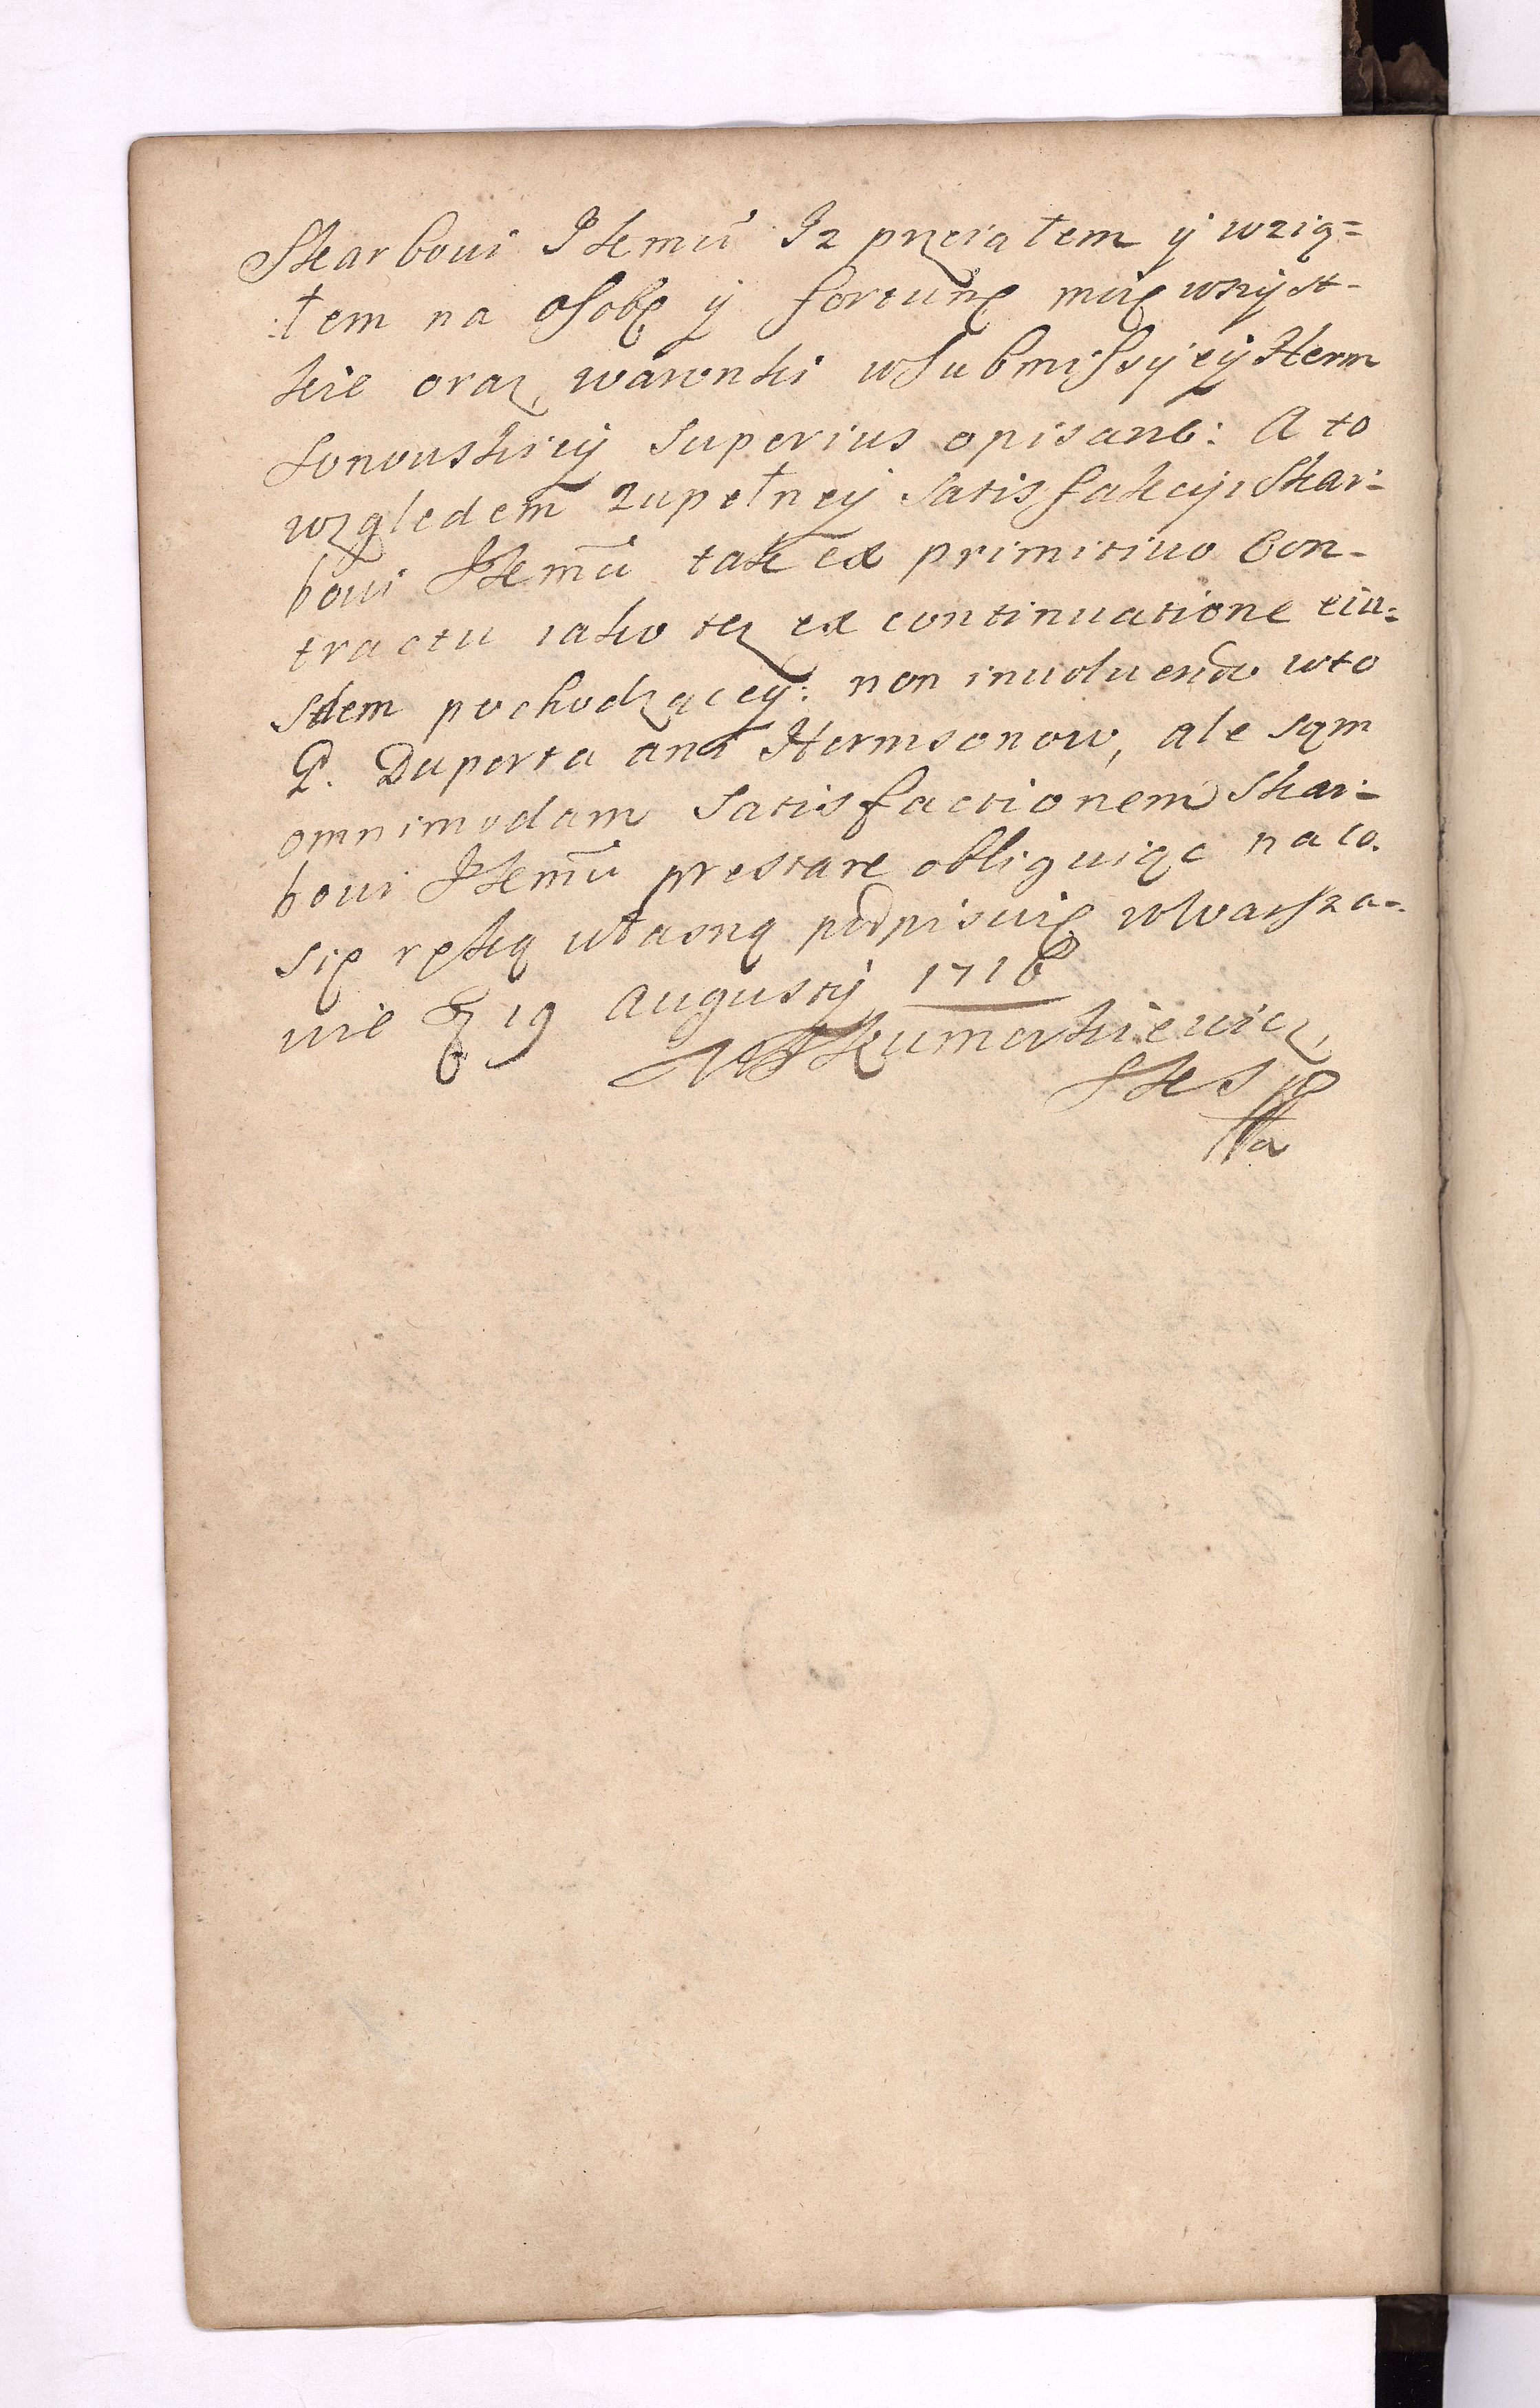 Skarbowi Jkemu Iz przeiąłem ӱ wzią=
:łem na osobę ӱ fortunę moię wszyst-
kie oraz warunki w Submissyi eӱ Herm
sonowskieӱ superius opisane: A to
względem zupełneӱ satisfakcӱi Skar=
bowi Jkemu tak ex primitivo Con-
tractu iako tez ex continuatione eiu=
sdem pochodząceӱ: non involvendo w to
P. Duporta ani Hermsonow, ale sam
omnimodam satisfactionem Skar=
bowi Jkemu prestare obliguiąc na co.
się ręką własną podpisuię w Warsza=
wie 19 Augustӱ 1716
Kumorkiewicz